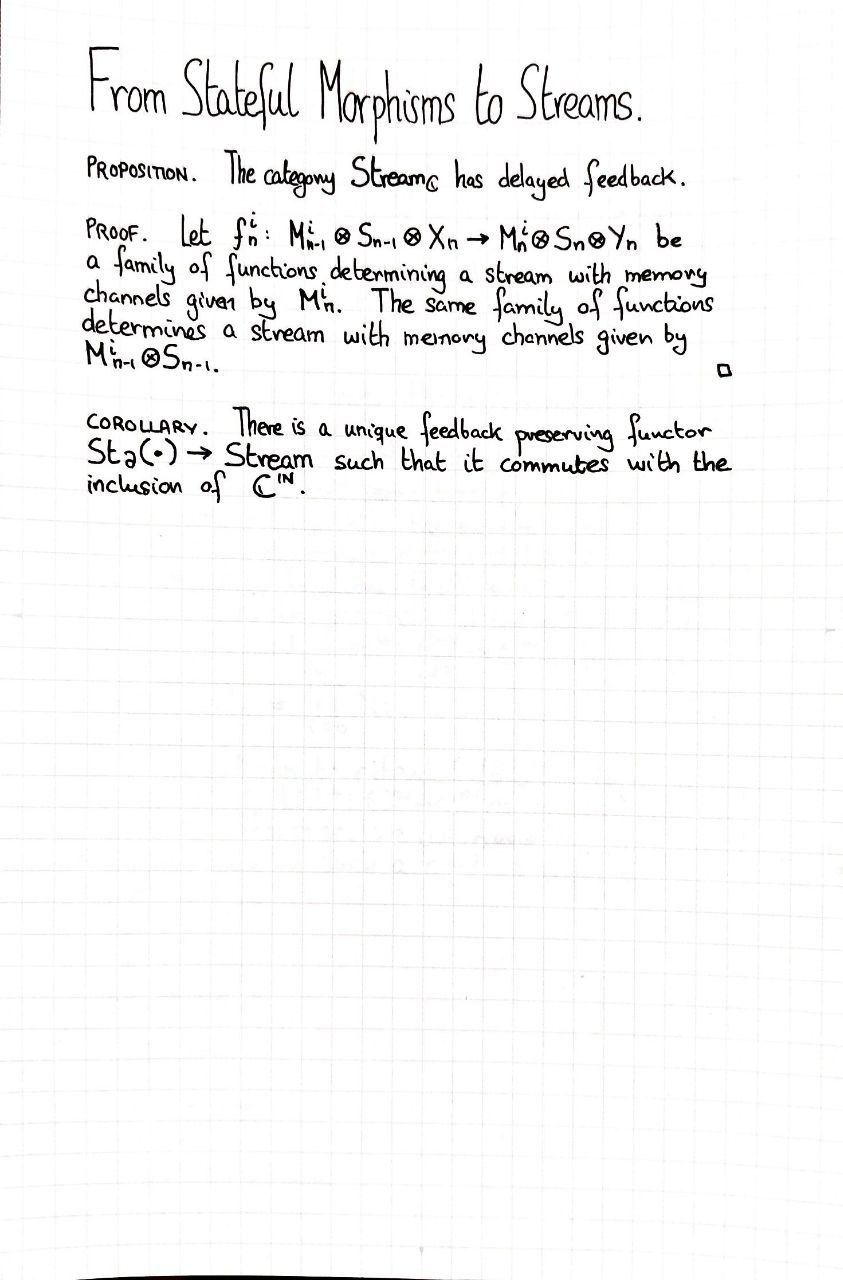 From Stateful Morphisms to Streams.
PROPOSITION. The category Stream_ℂ has delayed feedback.
PROOF. Let fⁱₙ: Mⁱₙ₋₁ ⊗ Sₙ₋₁ ⊗ Xₙ → Mⁱₙ ⊗ Sₙ ⊗ Yₙ be
a family of functions determining a stream with memory
channels given by Mⁱₙ. The same family of functions
determines a stream with memory channels given by
Mⁱₙ₋₁ ⊗ Sₙ₋₁. □
COROLLARY. There is a unique feedback preserving functor
St∂(•) → Stream such that it commutes with the
inclusion of ℂ^ℕ.